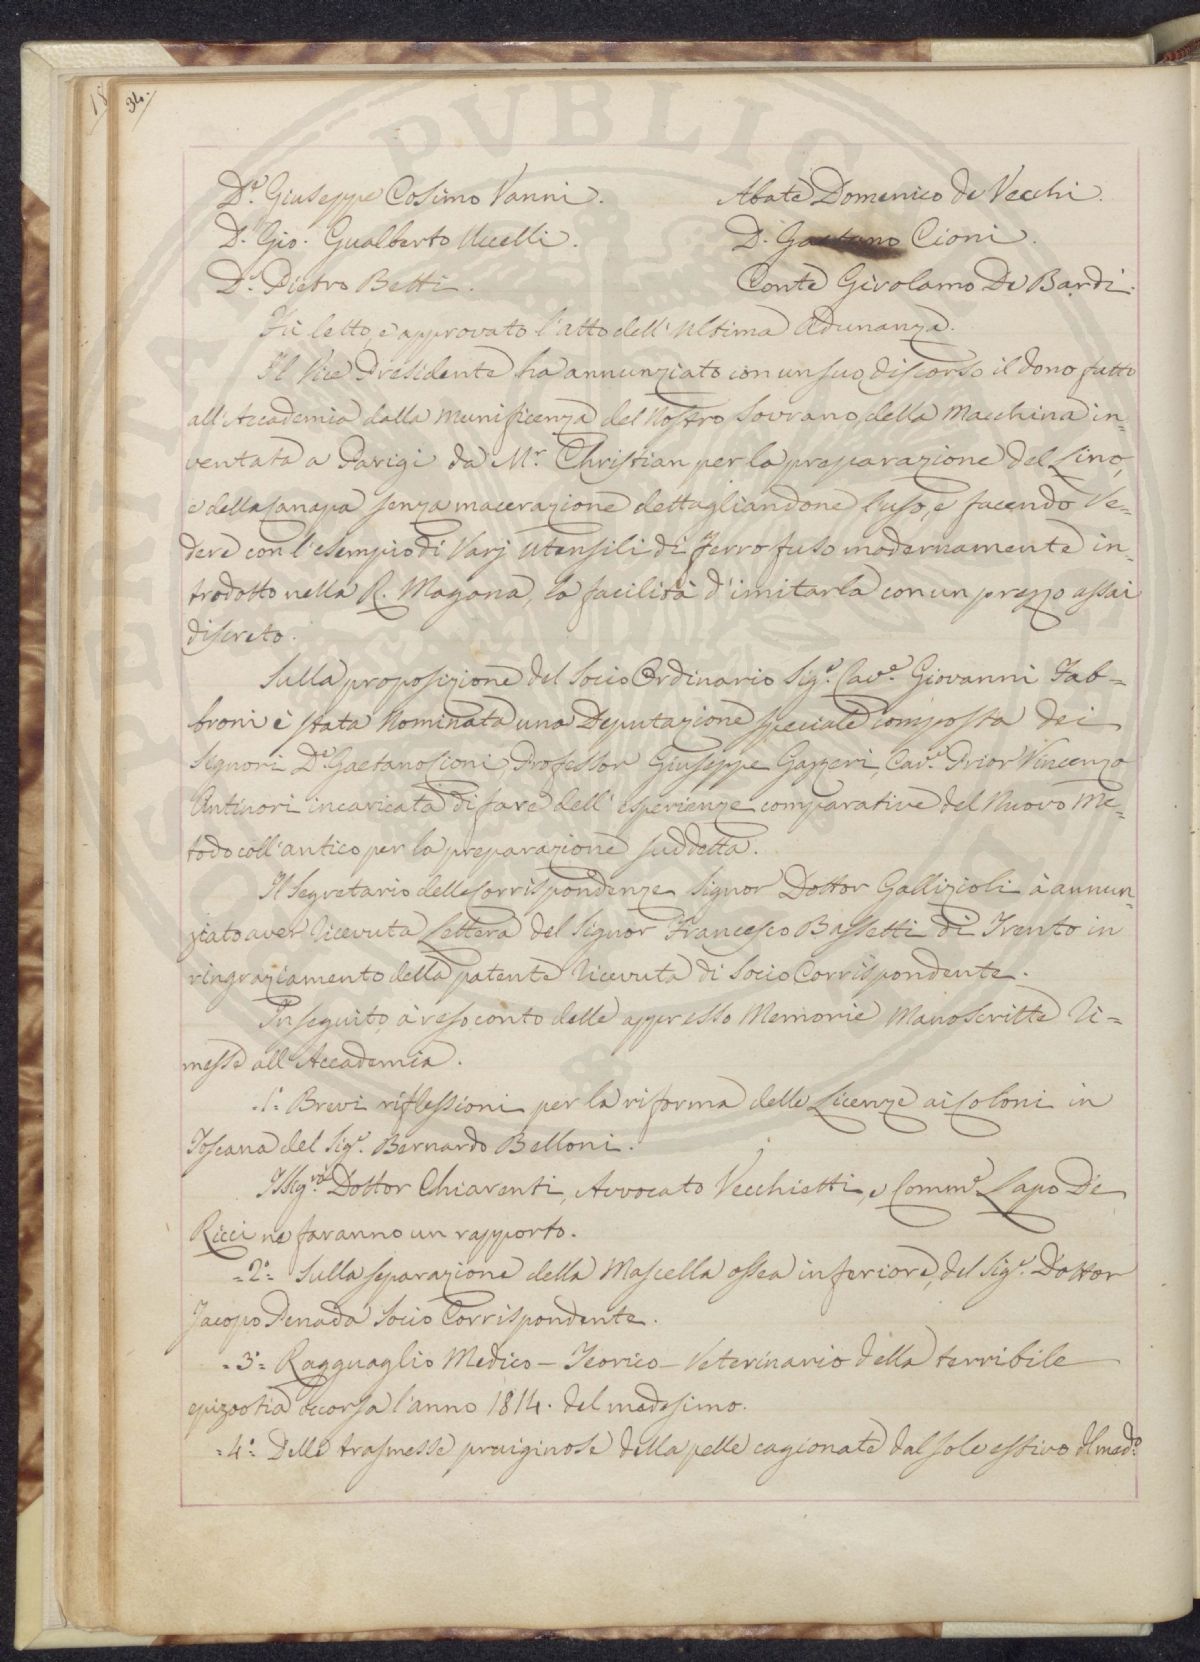 34.
D.r Giuseppe Cosimo Vanni.
D.r Gio. Gualberto Uccelli.
D.r Pietro Betti.
Abate Domenico de Vecchi.
D. Gaetano Cioni.
Conte Girolamo De Bardi.
Fù letto, e approvato l'atto dell'ultima Adunanza.
Il Vice Presidente ha annunziato con un suo discorso il dono fatto
all'Accademia dalla Munificenza del Nostro Sovrano della Macchina in=
ventata a Parigi da M.r Christian per la preparazione del Lino,
e della canapa senza macerazione dettagliandone l'uso, e facendo Ve=
dere con l'esempio di Varj Utensili di ferro fuso modernamente in=
trodotto nella R. Magona, la facilità d'imitarla con un prezzo assai
discreto.
Sulla proposizione del Socio Ordinario Sig.r Cav.e Giovanni Fab=
broni è stata Nominata una Deputazione speciale composta dei
Signori D.r Gaetano Cioni, Professor Giuseppe Gazzeri, Cav.e Prior Vincenzo
Antinori incaricata di fare dell'esperienze comparative del Nuovo Me=
todo coll'antico per la preparazione suddetta.
Il Segretario delle Corrispondenze Signor Dottor Gallizioli à annun=
ziato aver Ricevuta Lettera del Signor Francesco Bassetti di Trento in
ringraziamento della patente Ricevuta di Socio Corrispondente.
In seguito à reso conto delle appresso Memorie Manoscritte Ri=
messe all'Accademia.
.1.a Brevi riflessioni per la riforma delle Licenze ai Coloni in
Toscana del Sig.r Bernardo Belloni.
I Sig.ri Dottor Chiarenti, Avvocato Vecchietti, e Comm.e Lapo De
Ricci ne faranno un rapporto.
=2.a= Sulla separazione della Mascella ossea inferiore, del Sig.r Dottor
Jacopo Penada Socio Corrispondente.
=3.a= Ragguaglio Medico-Teorico-Veterinario della terribile
epizootia occorsa l'anno 1814. del medesimo.
=4.a Delle trasmesse pruiginose della pelle cagionate dal sole estivo del med.o